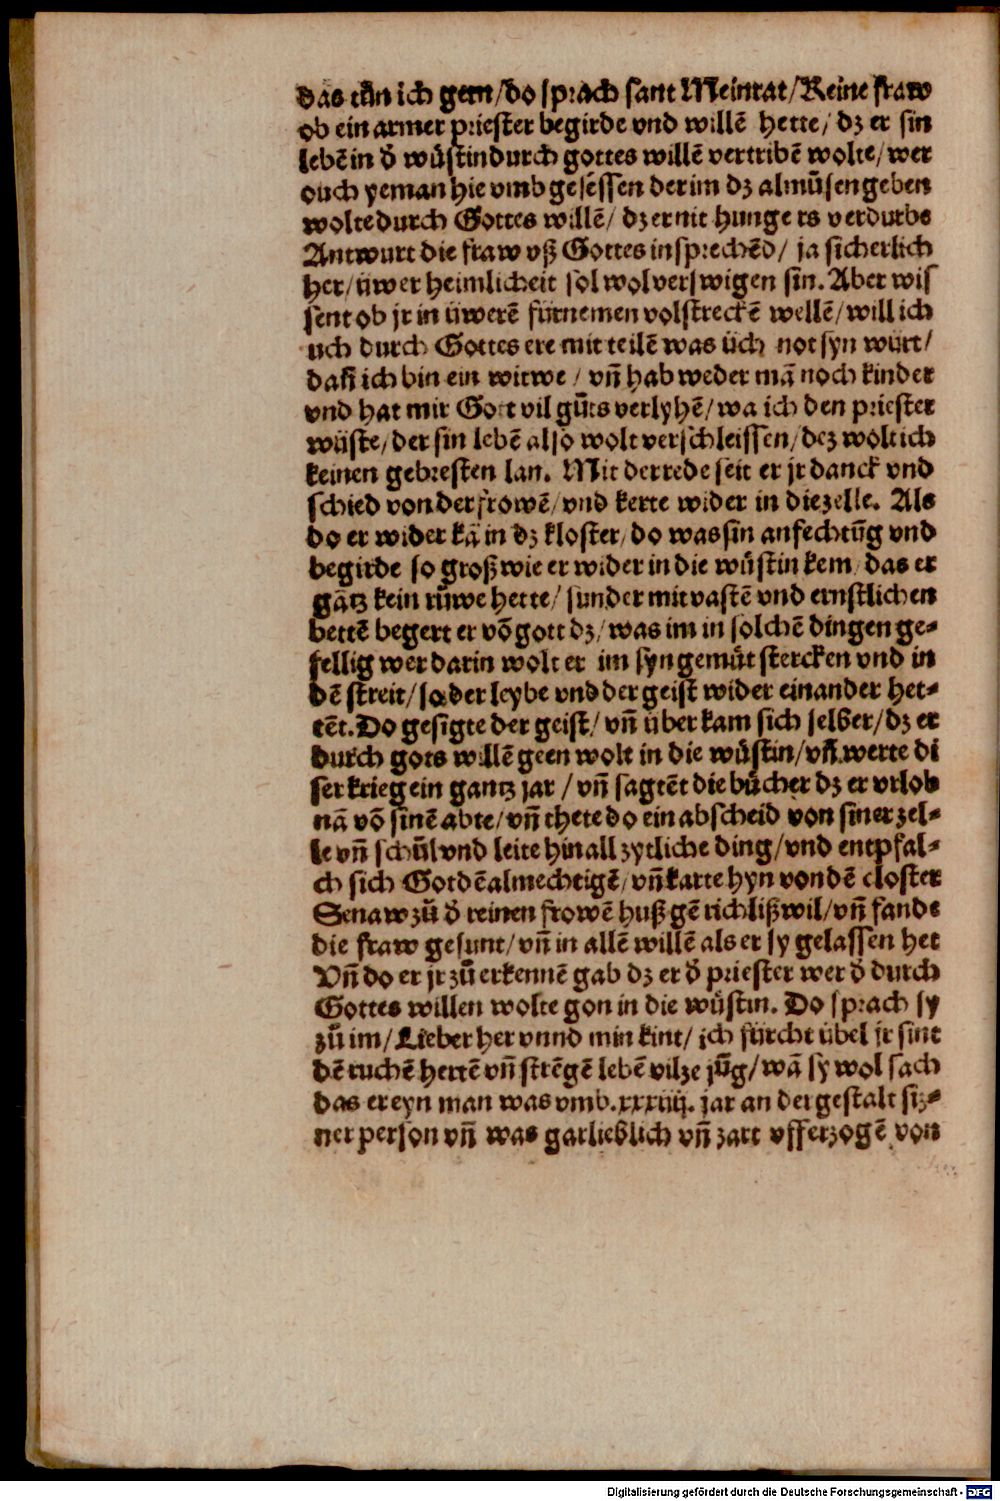 das tůn ich gern/do sprach sant Meinrat/Reine fraw
ob ein armer priester begirde vnd willē hette/ dz er sin
lebē in d̓ wůstin durch gottes willē vertribē wolte/wer
ouch yeman hie vmb gesessen der im dz almůsen geben
wolte durch Gottes willē/ dz er nit hungers verdurbe
Antwurt die fraw vß Gottes insprechēd/ ja sicherlich
her/üwer heimlicheit sol wol verswigen sin. Aber wis
sent ob jr in üwerē fürnemen volstreckē wellē/will ich
uch durch Gottes ere mit teilē was üch not syn würt/
dañ ich bin ein witwe/ vñ hab weder mā noch kinder
vnd hat mir Gott vil gůts verlyhē/wa ich den priester
wüste/der sin lebē also wolt verschleissen/dez wolt ich
keinen gebresten lan. Mit der rede seit er jr danck vnd
schied von der frowē/vnd kerte wider in die zelle. Als
do er wider kā in dz kloster/do was sin anfechtūg vnd
begirde so groß wie er wider in die wůstin kem/das er
gātz kein růwe hette/sunder mit vastē vnd ernstlichen
bettē begert er vō gott dz/was im in solchē dingen ge-
fellig wer darin wolt er im syn gemůt stercken vnd in
dē streit/so der leybe vnd der geist wider einander het-
tēt. Do gesigte der geist/ vñ über kam sich selber/dz er
durch gots willē geen wolt in die wůstin/vñ werte di
ser krieg ein gantz jar / vñ sagtēt die bůcher dz er vrlob
nā vō sinē abte/vñ thete do ein abscheid von siner zel-
le vñ schůl vnd leite hin all zytliche ding/vnd entpfal-
ch sich Got dē almechtigē/vñ karte hyn von dē closter
Senaw zů d̓ reinen frowē huß gē richlißwil/vñ fande
die fraw gesunt/vñ in allē willē als er sy gelassen het
Vñ do er jr zů erkennē gab dz er d̓ priester wer d̓ durch
Gottes willen wolte gon in die wůstin. Do sprach sy
zů im/Lieber her vnnd min kint/ ich fürcht übel jr sint
dē ruchē hertē vñ strēgē lebē vil ze jūg/wā sy wol sach
das er eyn man was vmb.xxxiiij. jar an der gestalt siz-
ner person vñ was gar lieblich vñ zart vfferzogē von
Digitalisierung gefördert durch die Deutsche Forschungsgemeinschaft - DFG